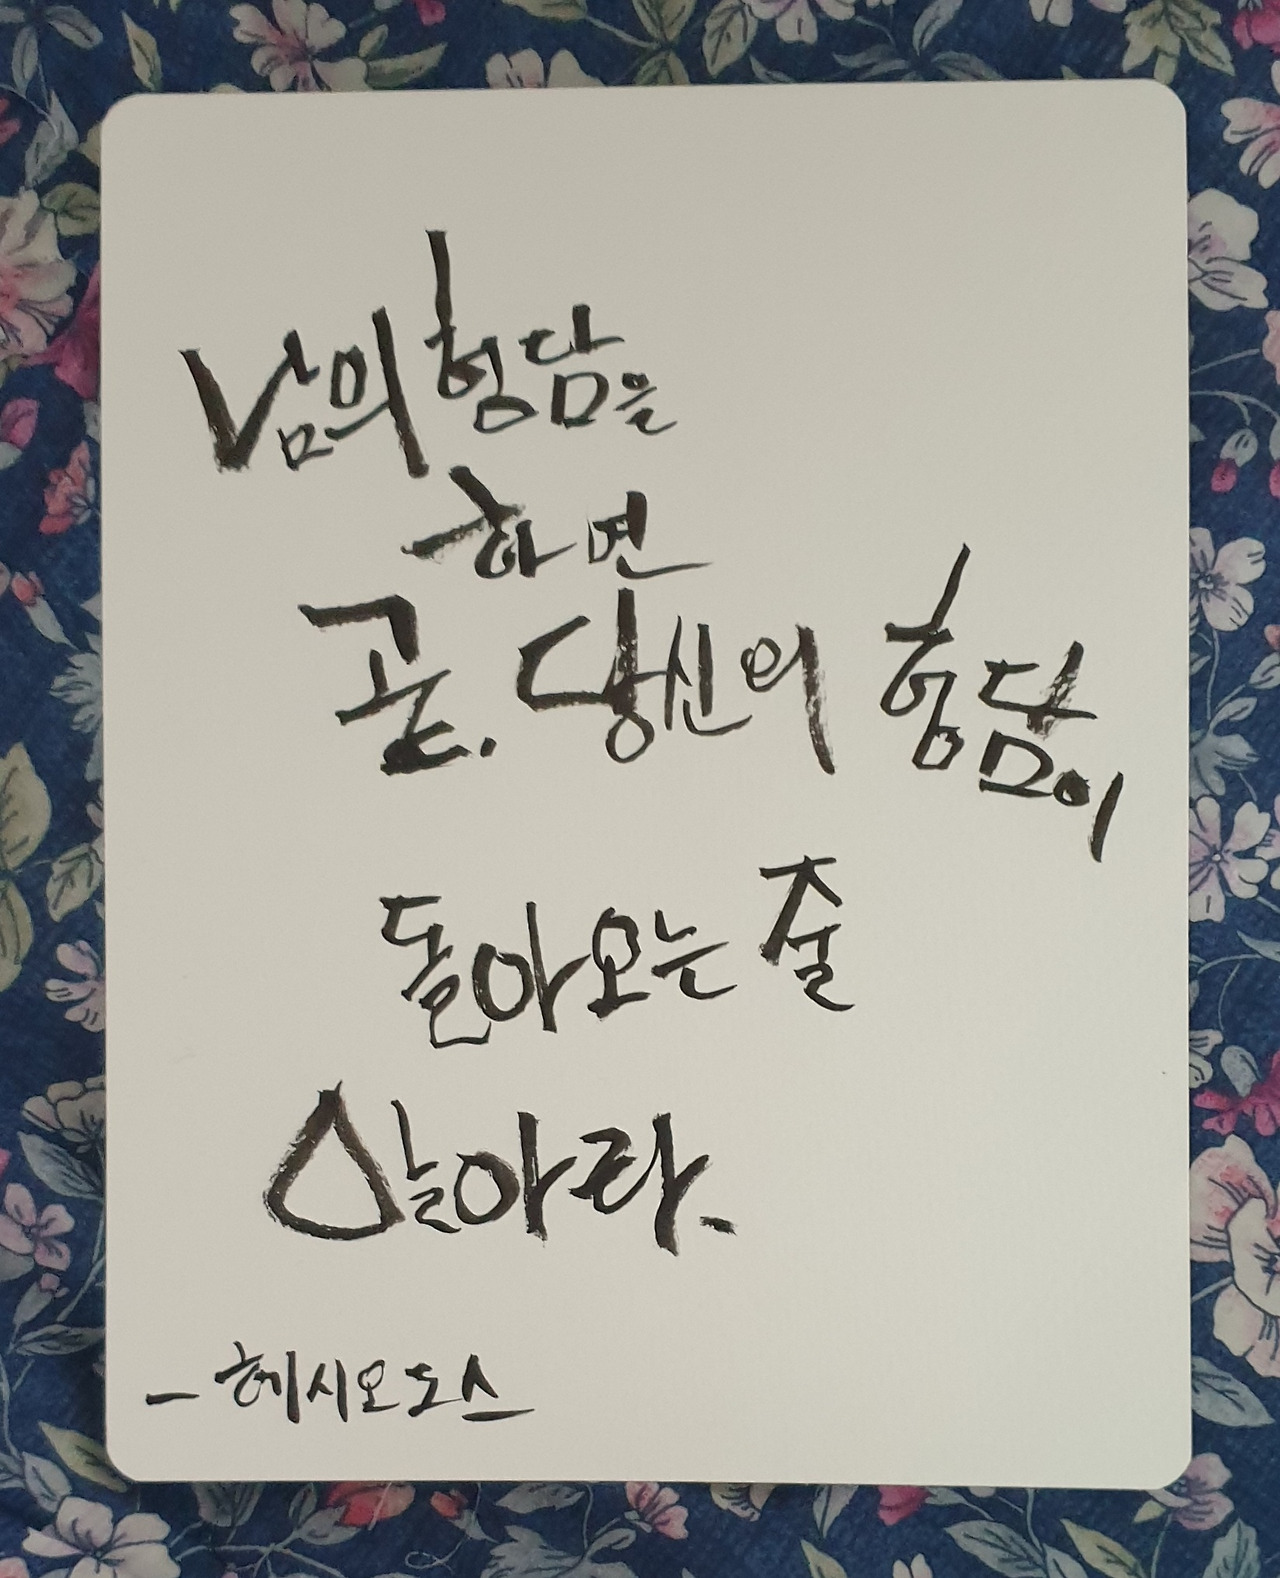 남의 험담을
하면
곧. 당신의 험담이
돌아오는 줄
알아라.
- 헤시오도스